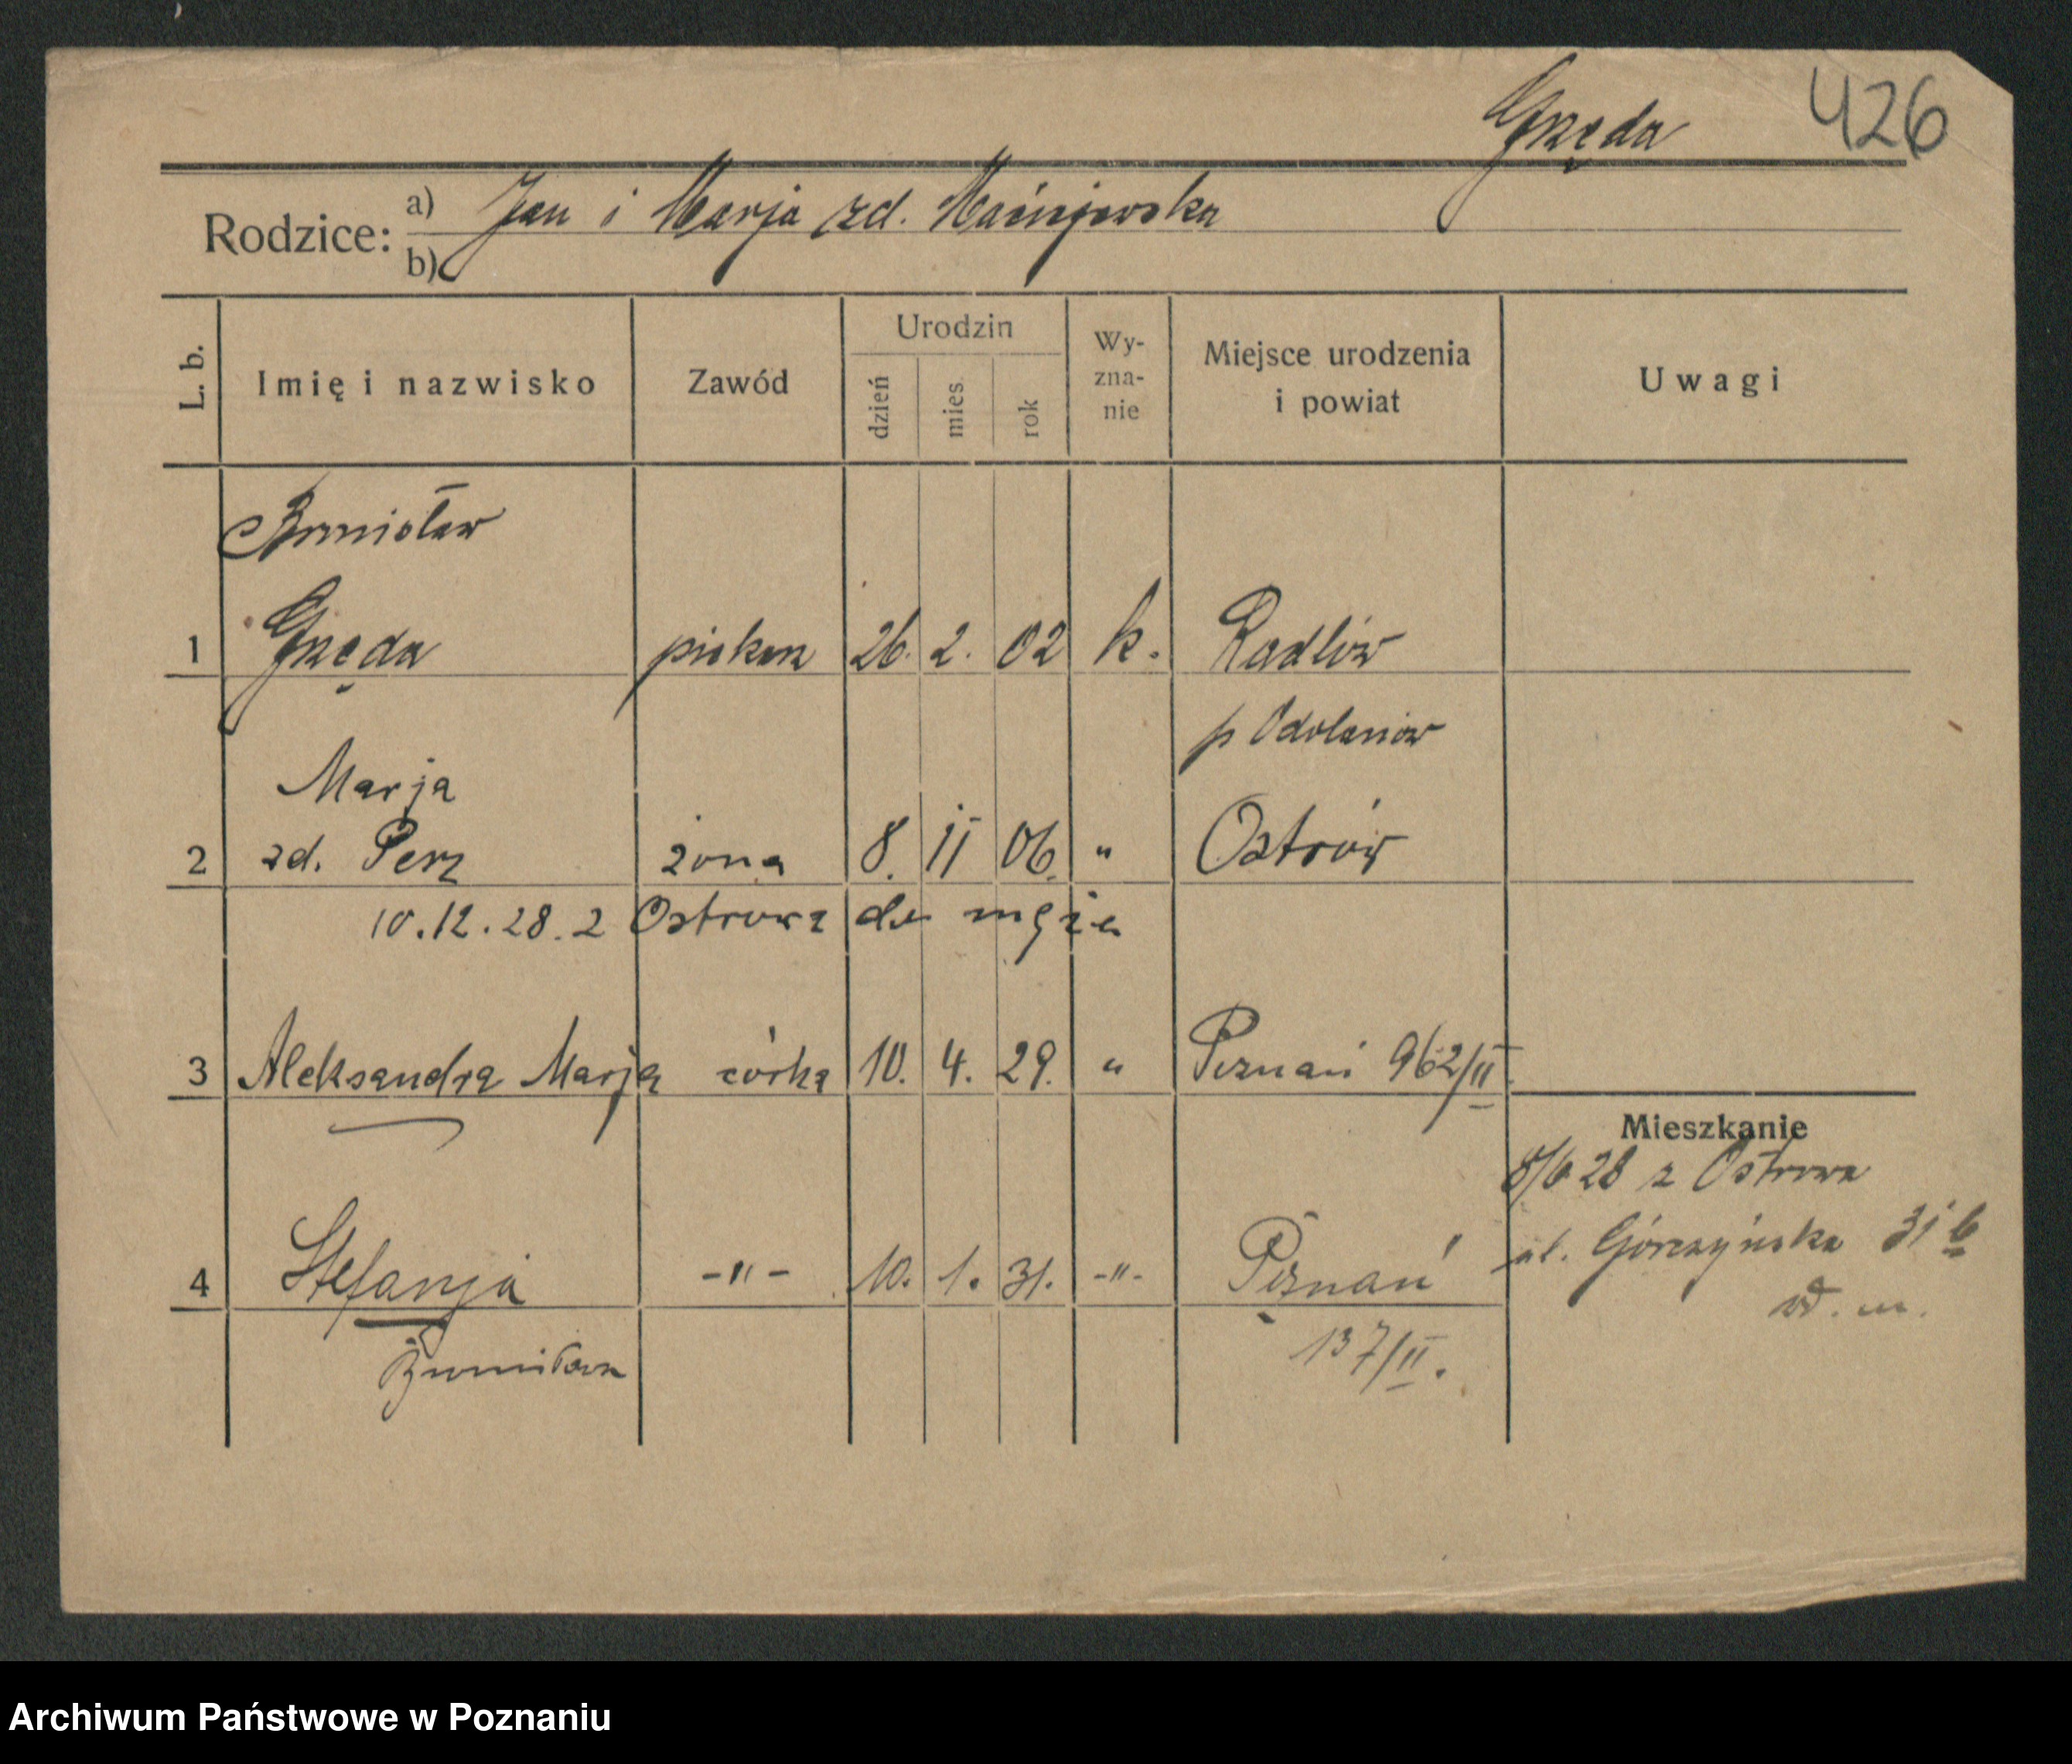 Grzęda 426
Rodzice: a) Jan i Marja zd. Maćkjewska
b)
L. b. Imię i nazwisko Zawód Urodzin dzień mies. rok Wy-zna-nie Miejsce urodzenia i powiat Uwagi
Bronisław
1 Grzęda piekarz 26. 2. 02 k. Radłów
p Odolanów
Marja
2 zd. Perz żona 8. 11 06. " Ostrów
10.12.28. z Ostrowa do męża
3 Aleksandra Marja córka 10. 4. 29. " Poznań 962/II
Mieszkanie
8/6 28 z Ostrowa
ul. Górczyńska 31 b
4 Stefanja -"- 10. 1. 31. -"- Poznań
137/II.
Bronisława
Archiwum Państwowe w Poznaniu